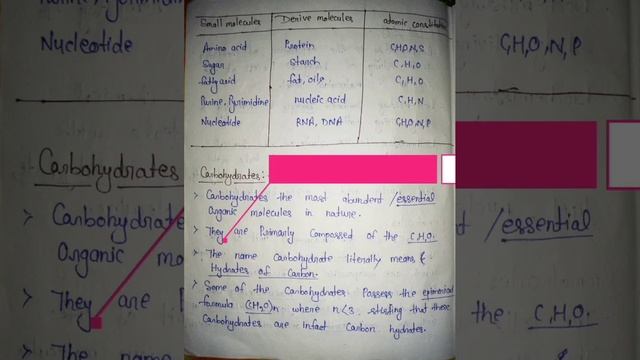 Small molecules Derive molecules atomic constituen
Amino acid Protein C,H,O,N,S
Sugar Starch C,H,O
fatty acid fat, oils, C,H,O
Purine, Pyrimidine nucleic acid C,H,N
Nucleotide RNA, DNA C,H,O,N,P
Carbohydrates:
> Carbohydrates the most abundent / essential
Organic molecules in nature.
> They are Primarily Compossed of the C,H,O.
> The name Carbohydrate literally means
Hydrates of Carbon.
> Some of the Carbohydrates Possess the
formula (CH2O)n where n<3, that these
Carbohydrates are infact Carbon hydrates.
Nucleotide C,H,O,N,P
Carbohydrates
> Carbohydrate / essential
Organic mo
> They are P the C,H,O.
> The name